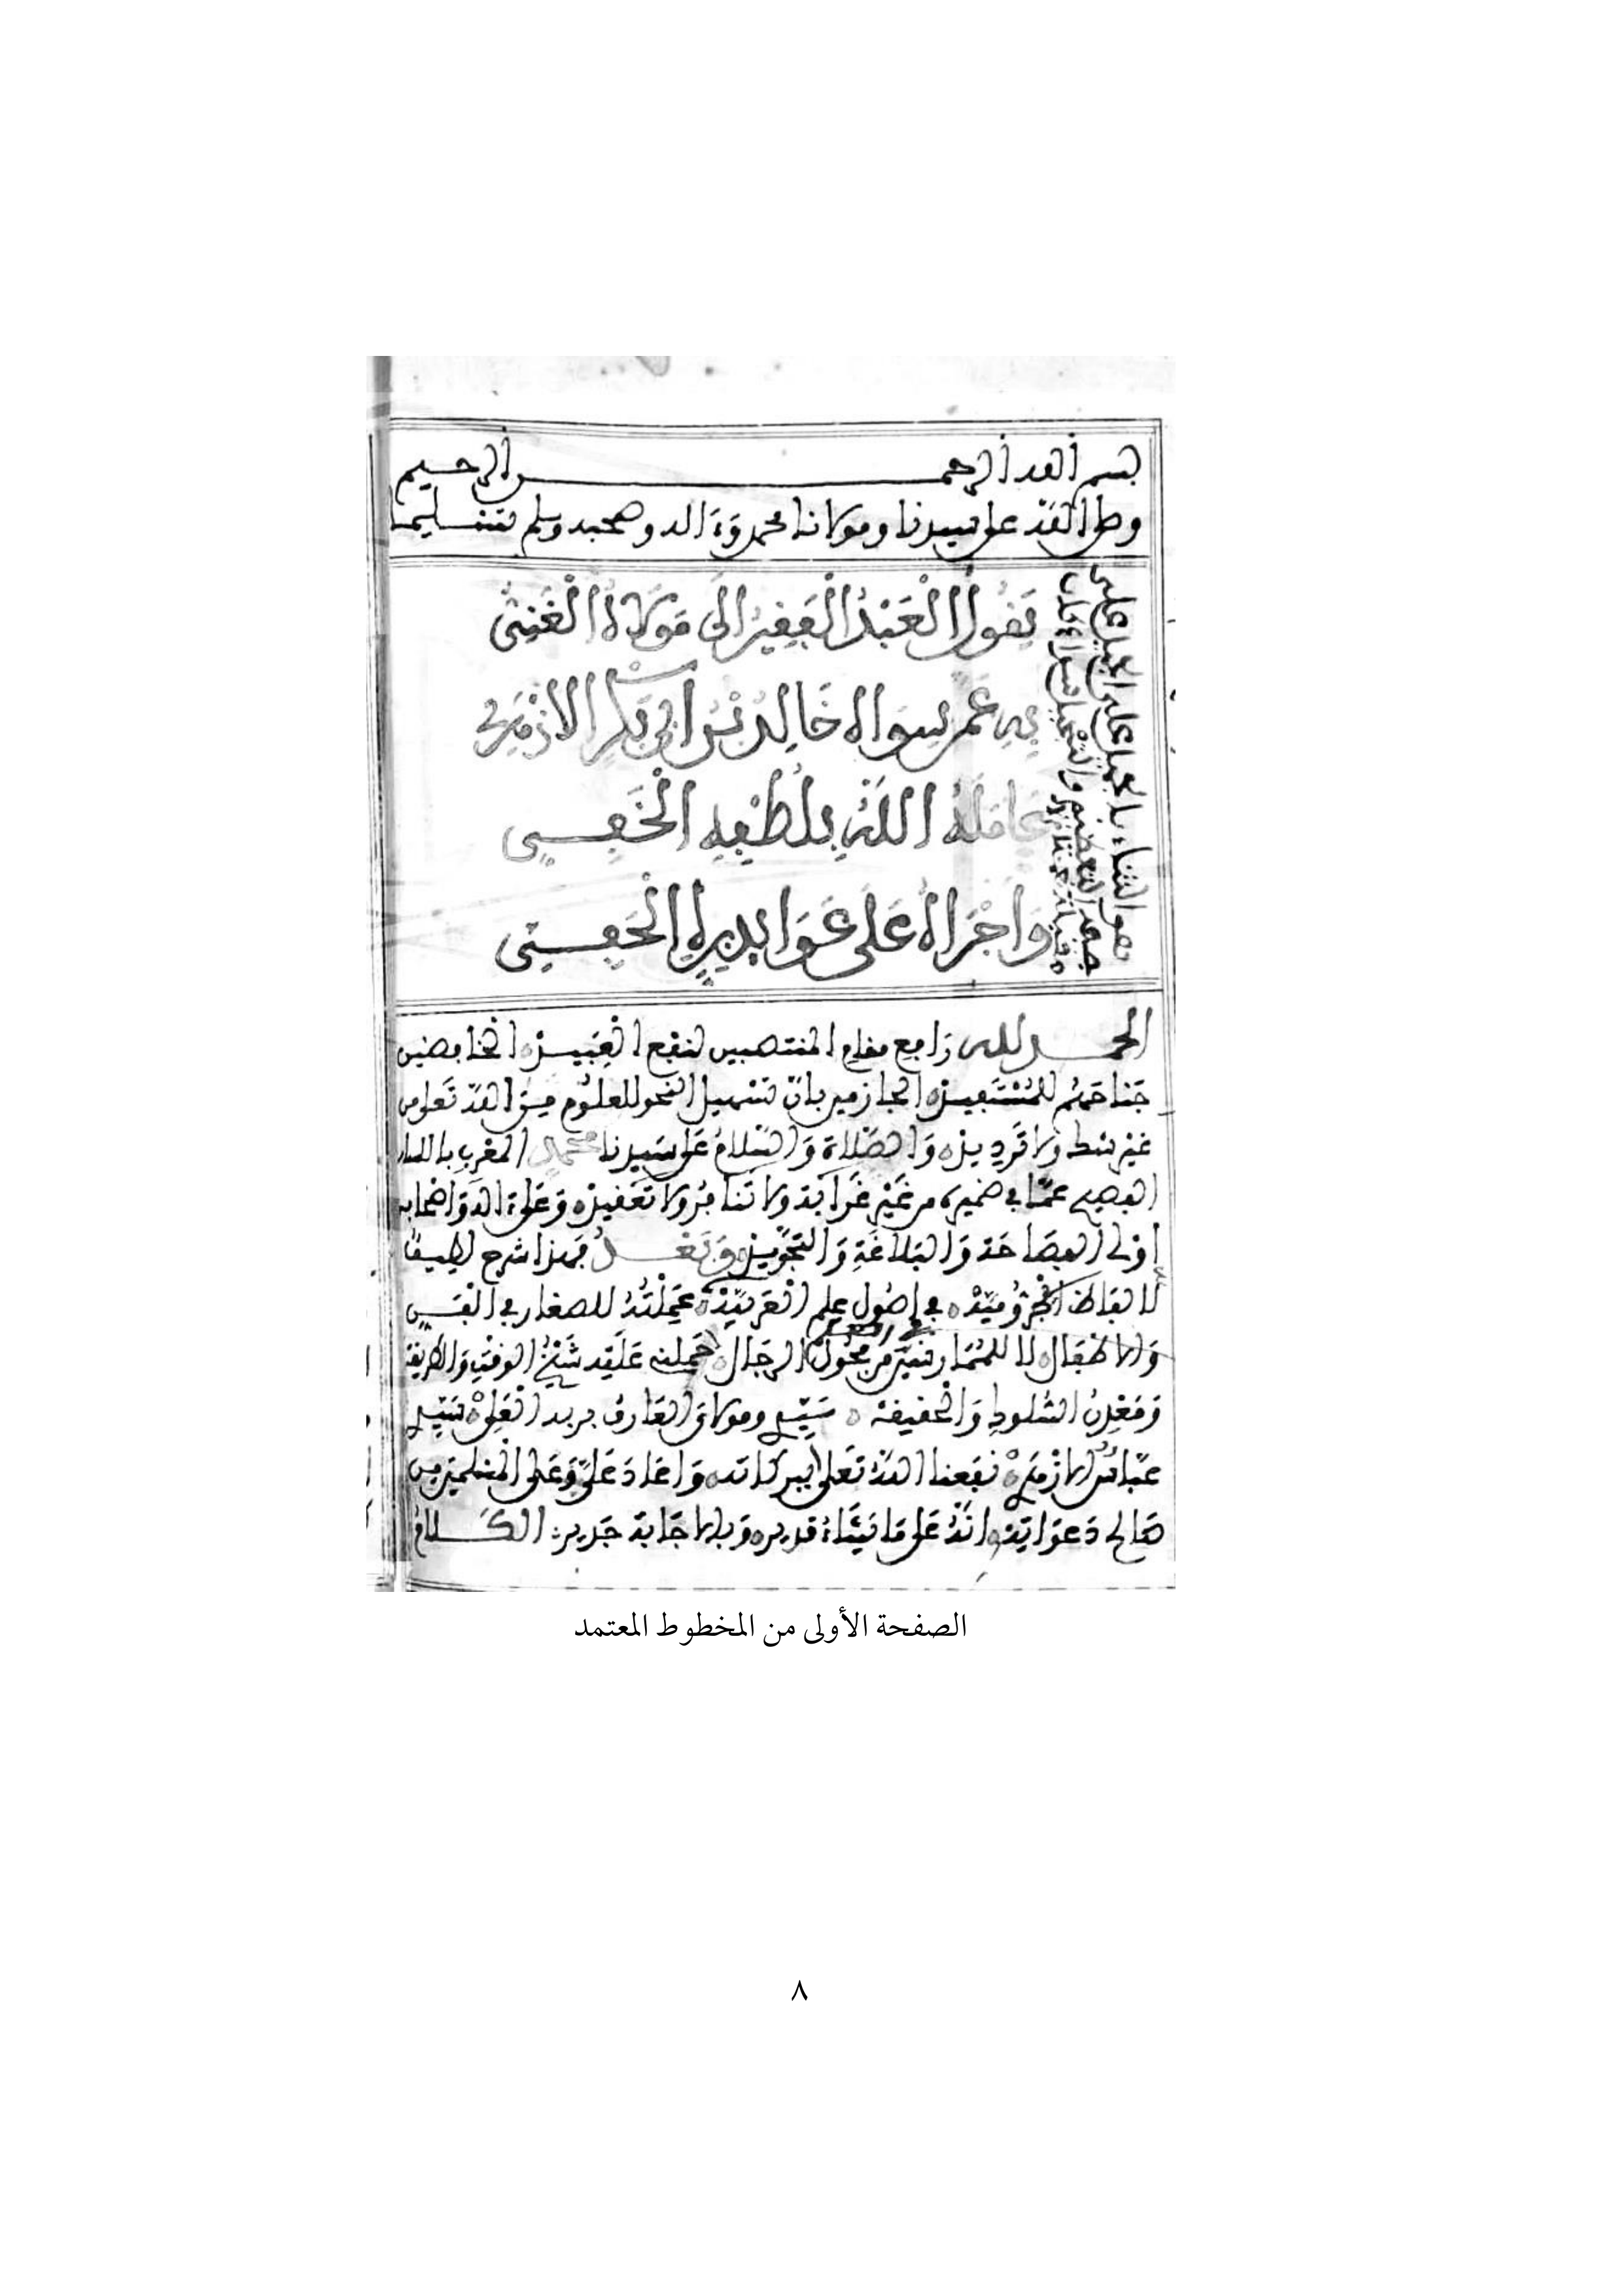 بسم الله الرحمن الرحيم
وصلى الله على سيدنا ومولانا محمد وءاله وصحبه وسلم تسليما
يَقُولُ الْعَبْدُ الْفَقِيرُ الَى مَوْلَاهُ الْغَنِيّ
بِهِ عَمَّن سِوَاه خَالِدُ بْنُ ابِي بَكْرٍ الازْهَرِي
عَامَلَهُ اللَّهُ بِلُطْفِهِ الْخَفِيِّ
وَاجْرَاهُ عَلَى عَوَايدِ بره الْحَفِيّ
هو الثناء بالجميل على الجميل على
جهة التعظيم والتبجيل سواء كان
الحمد لله رَافِع مقام المنتصبين لنفع الْعَبِيدْ الخافضين
جَنَاحَهُم للمُسْتَفِيدْ الجازمين بأنّ تَسْهيل النحو للعلُوم مِنَ اللهِ تَعَلى من
غَيْر شك ولا تَرديدْ وَالصَّلَاة وَالسَّلَامُ عَلى سَيدنا محمد المعْرب باللسان
الفصيح عمّا في ضميره من غَيْر غَرَابَة ولا تنافُر ولا تَعْقيدْ وَعَلى ءاله وَاصْحابه
اولى الفصَاحَة وَالبَلَاغَةِ وَالتَّجْويدْ وَبَعْدُ فهذا شرح لطيف
لالفاظ الجرُوميّه في اصُول عِلم العَرَبيّه عَمِلْتُهُ للصغار في الْفن
وَالاطفَال لا للمُمارسين من فحُول الرجَال حَملني عَلَيه شَيْخُ الوقت وَالطريقة
وَمَعْدِنُ السُّلوك وَالْحقيقة سَيّدي ومولاي العَارف بربه الْعَلي سَيّدي
عبّاسُ الازهَري نفعنا اللهُ تَعَلى ببركاته وَاعَادَ عَلَيَّ وَعَلى المُسلمين من
صَالح دَعَوَاتِه انّهُ عَلى مَا يَشَاءُ قدير وَبالاجَابة جَدير الكَلَامُ
الصفحة الأولى من المخطوط المعتمد
٨